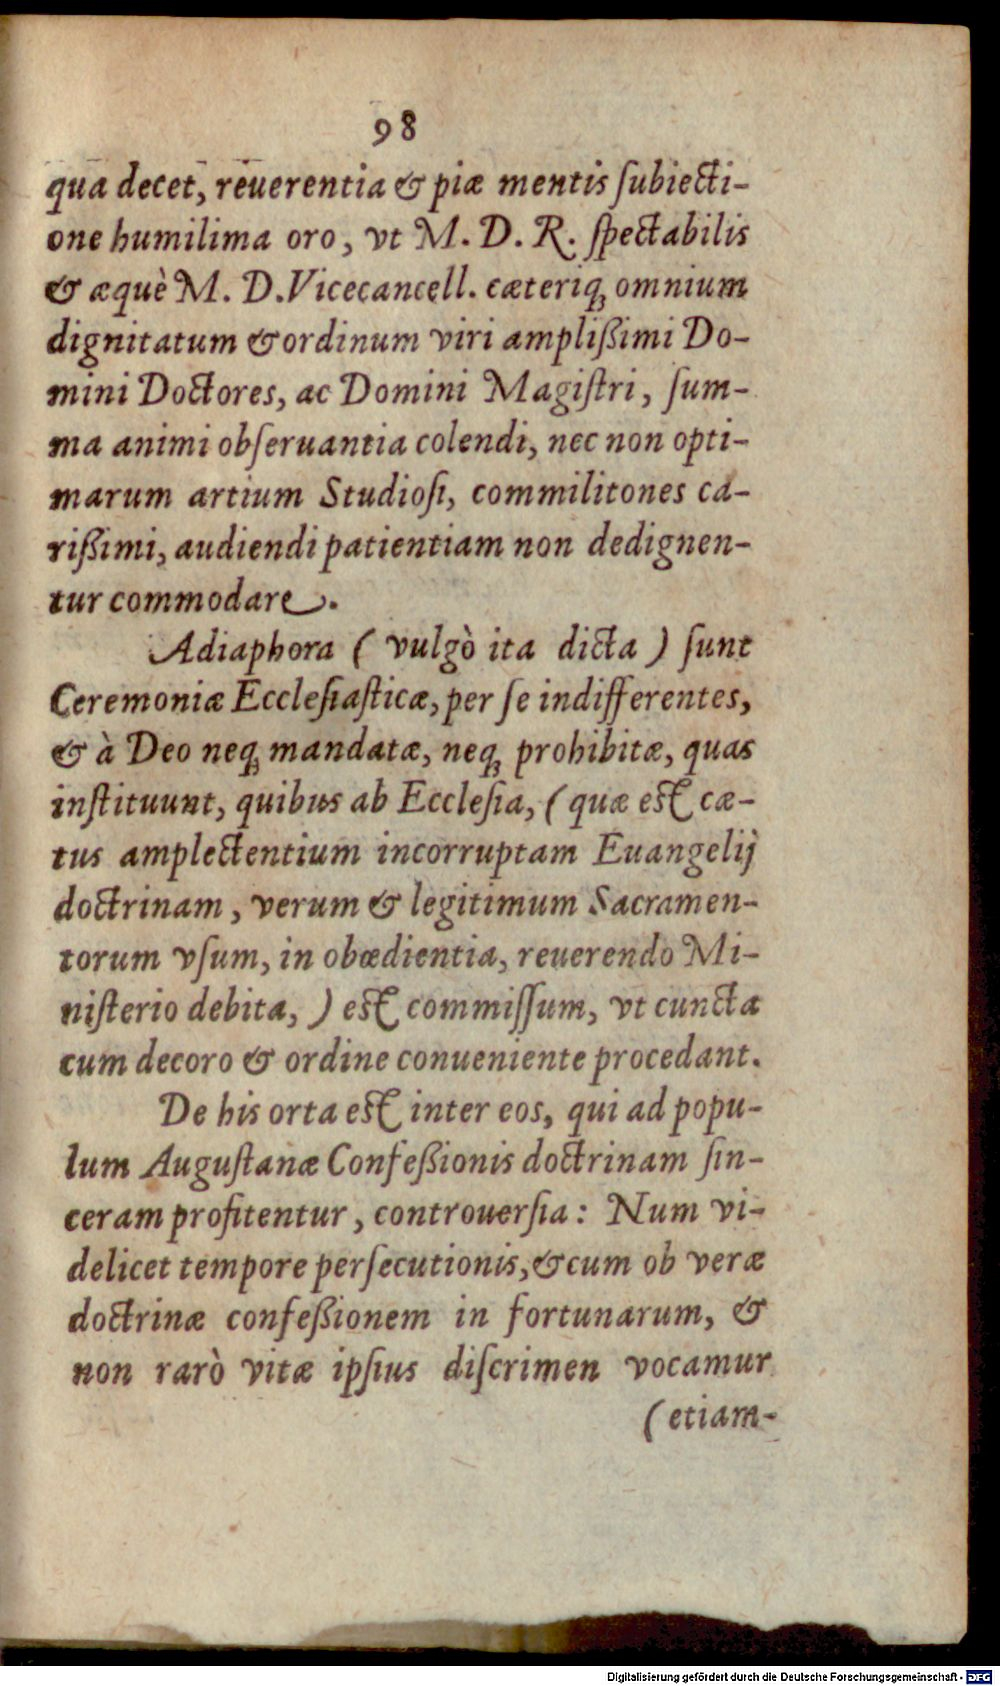 98
qua decet, reuerentia & piæ mentis ſubiecti-
one humilima oro, vt M. D. R. ſpectabilis
& æquè M. D. Vicecancell. cæteriqꝫ omnium
dignitatum & ordinum viri ampliſſimi Do-
mini Doctores, ac Domini Magiſtri, ſum-
ma animi obſeruantia colendi, nec non opti-
marum artium Studioſi, commilitones ca-
rißimi, audiendi patientiam non dedignen-
tur commodare.
Adiaphora ( vulgò ita dicta ) ſunt
Ceremoniæ Eccleſiaſticæ, per ſe indifferentes,
& à Deo neqꝫ mandatæ, neqꝫ prohibitæ, quas
inſtituunt, quibus ab Eccleſia, ( quæ eſt cæ-
tus amplectentium incorruptam Euangelij
doctrinam, verum & legitimum Sacramen-
torum vſum, in obœdientia, reuerendo Mi-
niſterio debita, ) eſt commiſſum, vt cuncta
cum decoro & ordine conueniente procedant.
De his orta eſt inter eos, qui ad popu-
lum Auguſtanæ Confeßionis doctrinam ſin-
ceram profitentur, controuerſia: Num vi-
delicet tempore perſecutionis, & cum ob veræ
doctrinæ confeßionem in fortunarum, &
non rarò vitæ ipſius diſcrimen vocamur
(etiam-
Digitalisierung gefördert durch die Deutsche Forschungsgemeinschaft - DFG